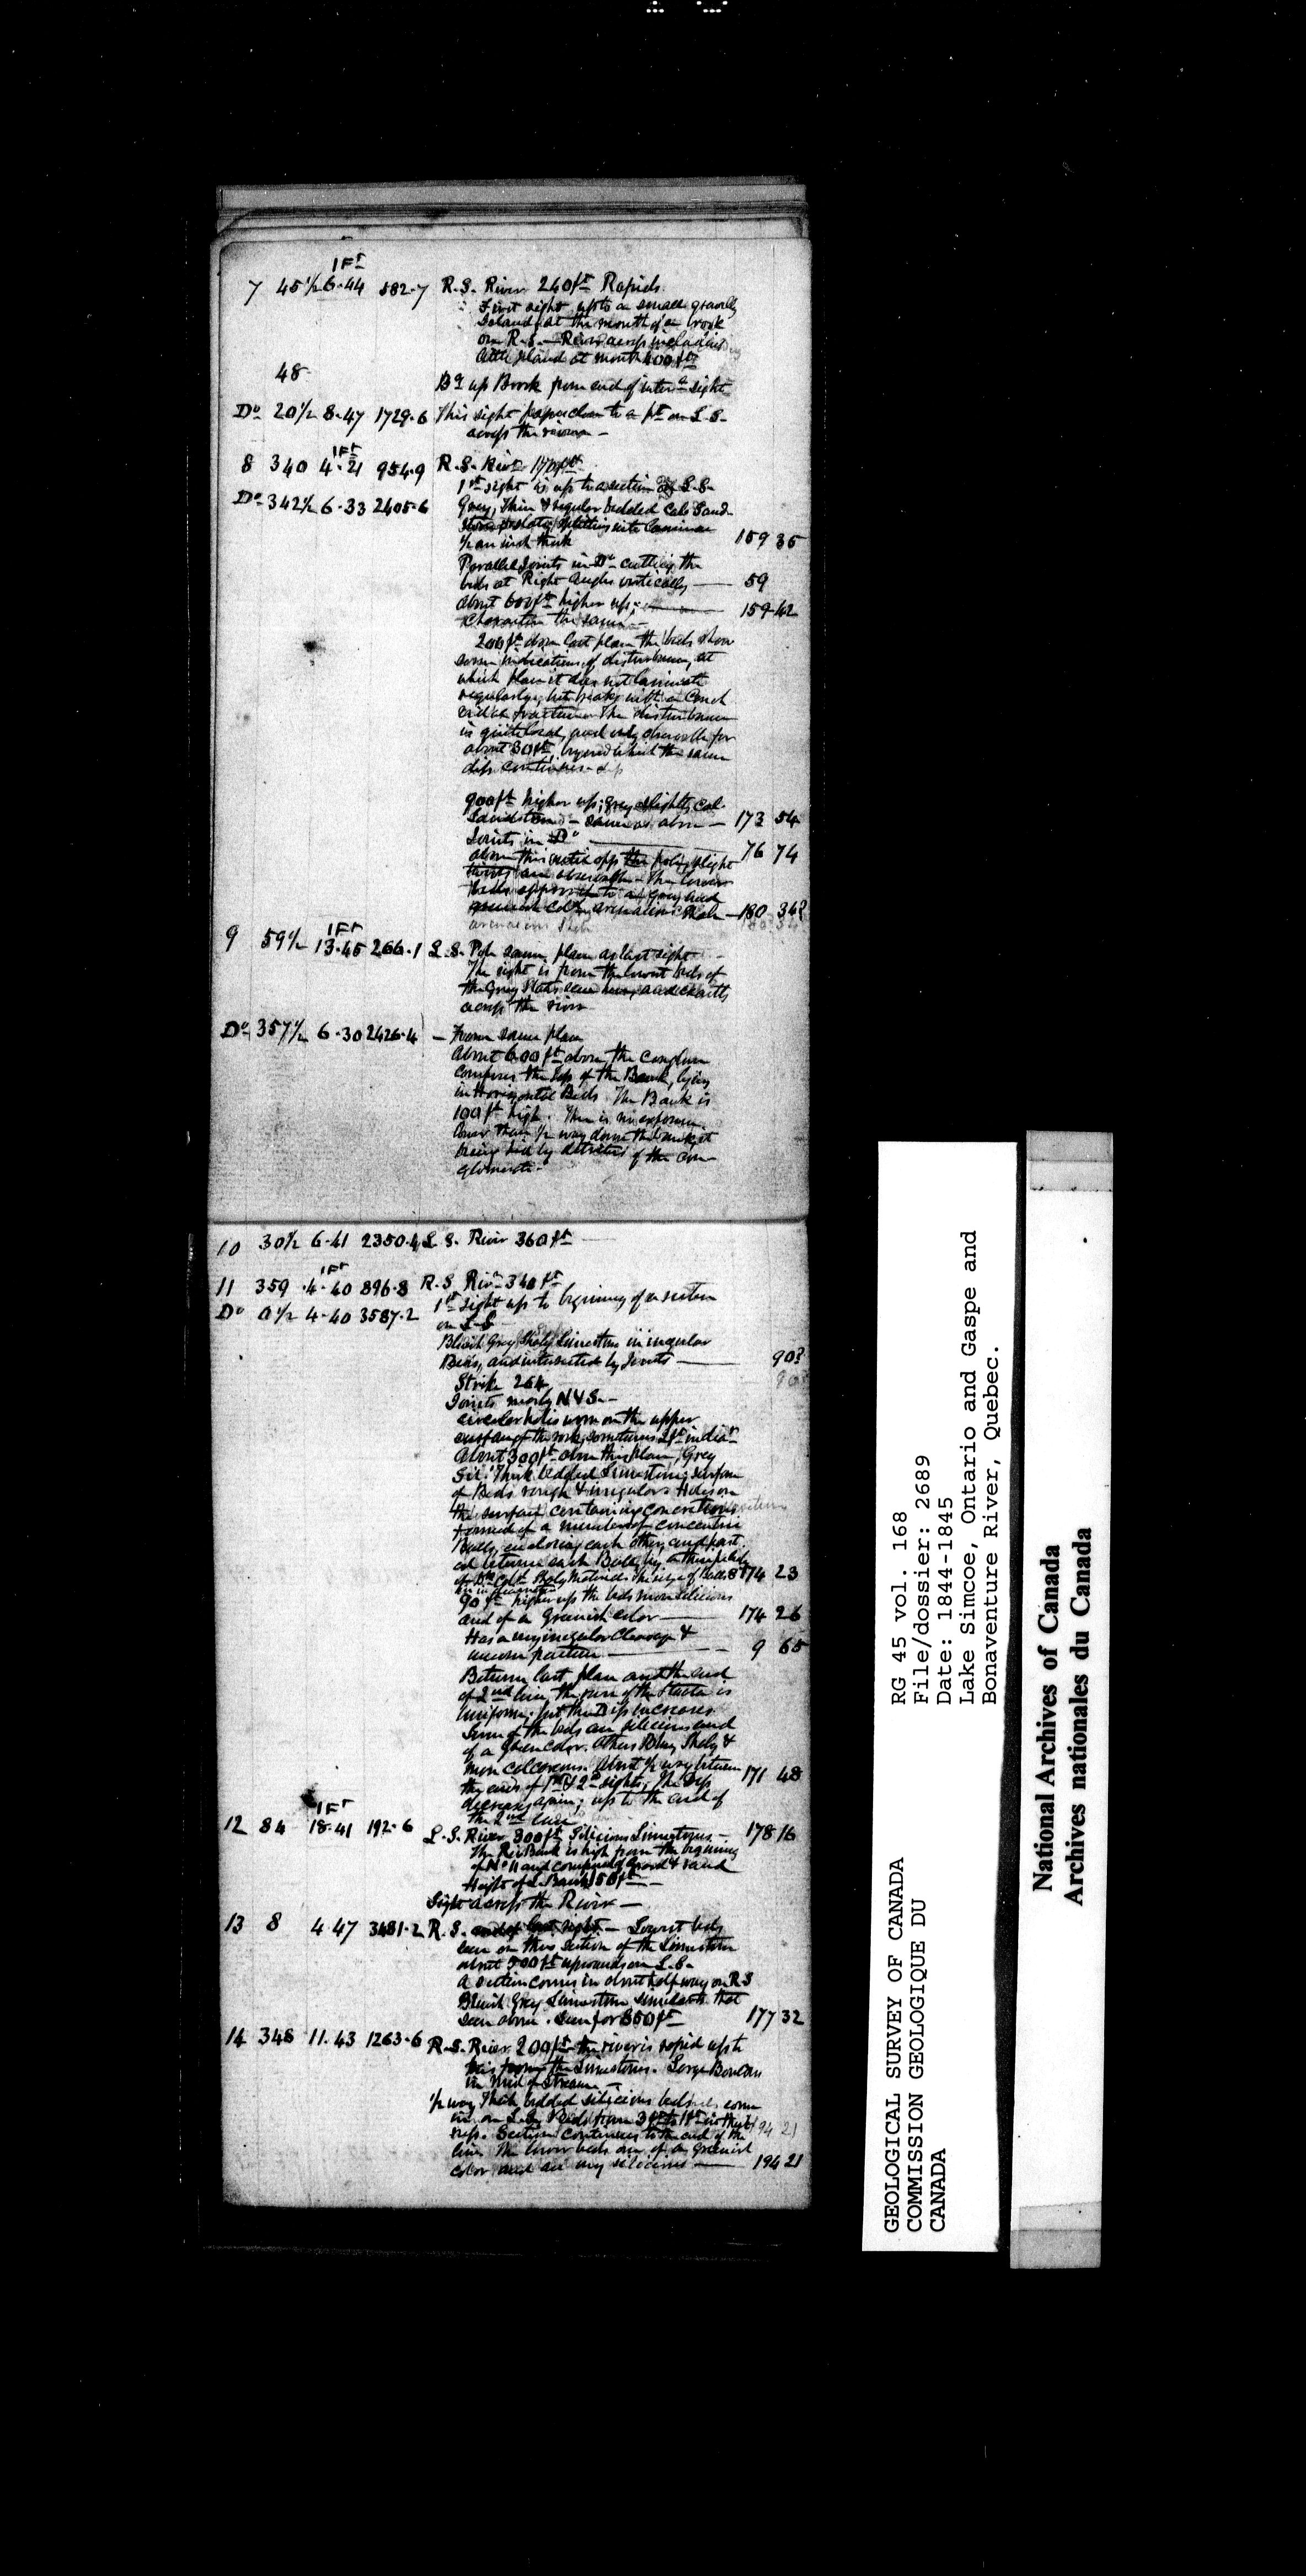 1 Ft
7 45 1/2 6.44 582.7 R.S. River 240 ft Rapids
First sight up to a small gravelly
Island at the mouth of a brook
on R.S. — River across including
little Island at mouth 400 ft
48
Bg up Brook from end of inter sight
Do 20 1/2 8.47 1729.6 This sight passes close to a pt on L.S.
across the river —
1 Ft
8 340 4.21 954.9 R.S. River 170 ft
1st sight is up to a section on L.S.
Do 342 1/2 6.33 2405.6 Grey, Thin & regular bedded Calc Sand-
stone splitting into laminae
1/2 an inch thick 159 35
Parallel Joints in Do cutting the
beds at Right Angles vertically — 59
about 600 ft higher up; — 159 42
Character the same —
200 ft above last place the beds show
some indications of disturbance, at
which place it does not laminate
regularly, but breaks with a Conch
oidal fracture. The disturbance
is quite local, and only observable for
about 30 ft, beyond which the same
dip continues
900 ft higher up; grey slightly cal
Sandstone — same as above — 173 54
Joints in Do 76 76 74
above this
are observable. The lower
beds approach to a grey
arenaceous Shale — 180 34?
1 Ft
9 59 1/2 13.45 266.1 L.S. Pole same place as last sight
The sight is from the lowest beds of
the Grey
across the river
Do 357 1/2 6.30 2426.4 — From same place
About 600 ft above, the conglom
composes the top of the Bank, lying
in Horizontal Beds. The Bank is
100 ft high. There is no exposure
lower than 1/2 way down the bank, it
being hid by detritus of the con-
glomerate.
10 30 1/2 6.41 2350.4 L.S. River 360 ft
1 Ft
11 359 4.40 896.8 R.S. River 340 ft
1st sight up to beginning of a section
Do 0 1/2 4.40 3587.2 on L.S.
Bluish Grey Shaly Limestone in irregular
Beds, and intersected by Joints — 90?
Strike 264
Joints nearly N & S. —
circular holes worn on the upper
surface of the rock, sometimes 2 ft in diar
About 300 ft above this place, Grey
Sil. Thick bedded Limestone, surface
of Beds rough & irregular. Holes on
the surface containing concretions
formed of a number of concentric
Balls, enclosing each other, and part
ed between each Ball by a thin
of Shaly Material 174 23
90 ft higher up the beds more silicious
and of a Greenish color — 174 26
Has a very irregular Cleavage &
uneven parting — 9 65
Between last place and the end
of 2nd line, the run of the strata is
uniform, but the Dip increases.
Some of the beds are silicious and
of a Green color. others Bluey Shaly &
more calcareous. About 1/2 way between 171 48
the ends of 1st & 2d sights, the Dip
decreases again; up to the end of
the 2nd line
1 Ft
12 84 18.41 192.6 L.S. River 300 ft, Silicious Limestones. — 178 16
The Bank is high from the beginning
of No 11 and composed of Gravel & sand
Height of L. Bank 150 ft —
Sight across the River —
13 8 4.47 3481.2 R.S. end of last sight — Lowest beds
seen on this section of the Limestone
about 500 ft upwards on L.S.
A section comes in about half way on R.S
Bluish Grey Limestone similar to that
seen above. Seen for 850 ft 177 32
14 348 11.43 1263.6 R.S. River 200 ft — the river is rapid up to
this from the Limestones. Large Boulders
in mid Stream —
1/2 way Thick bedded silicious beds come
in on L.S. Beds from 3 ft to 1 ft in thick 194 21
ness. Section continues to the end of the
line. The lower beds are of a greenish
color and are very silicious — 194 21
GEOLOGICAL SURVEY OF CANADA
COMMISSION GEOLOGIQUE DU
CANADA
RG 45 vol. 168
File/dossier: 2689
Date: 1844-1845
Lake Simcoe, Ontario and Gaspe and
Bonaventure River, Quebec.
National Archives of Canada
Archives nationales du Canada